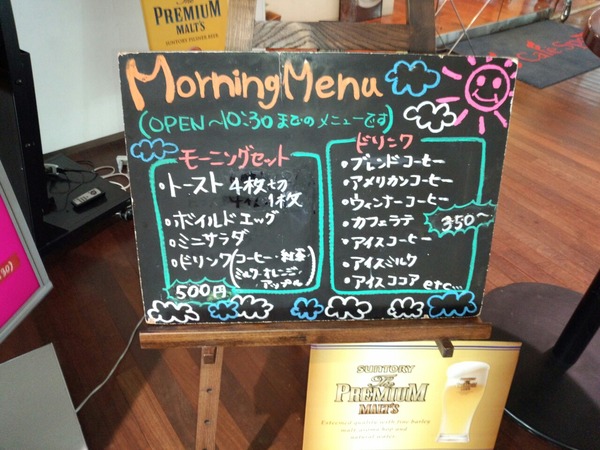 The
PREMIUM
MALT'S
SUNTORY PILSNER BEER
Morning Menu
(OPEN～10:30までのメニューです)
モーニングセット
・トースト 4枚切
1枚
・ボイルドエッグ
・ミニサラダ
・ドリンク(コーヒー・紅茶
ミルク・オレンジ・
アップル)
500円
ドリンク
・ブレンドコーヒー
・アメリカンコーヒー
・ウィンナーコーヒー
・カフェラテ
350～
・アイスコーヒー
・アイスミルク
・アイスココア etc...
SUNTORY
The
PREMIUM
MALT'S
Extremed quality with fine barley
malt aroma hop and
natural water.